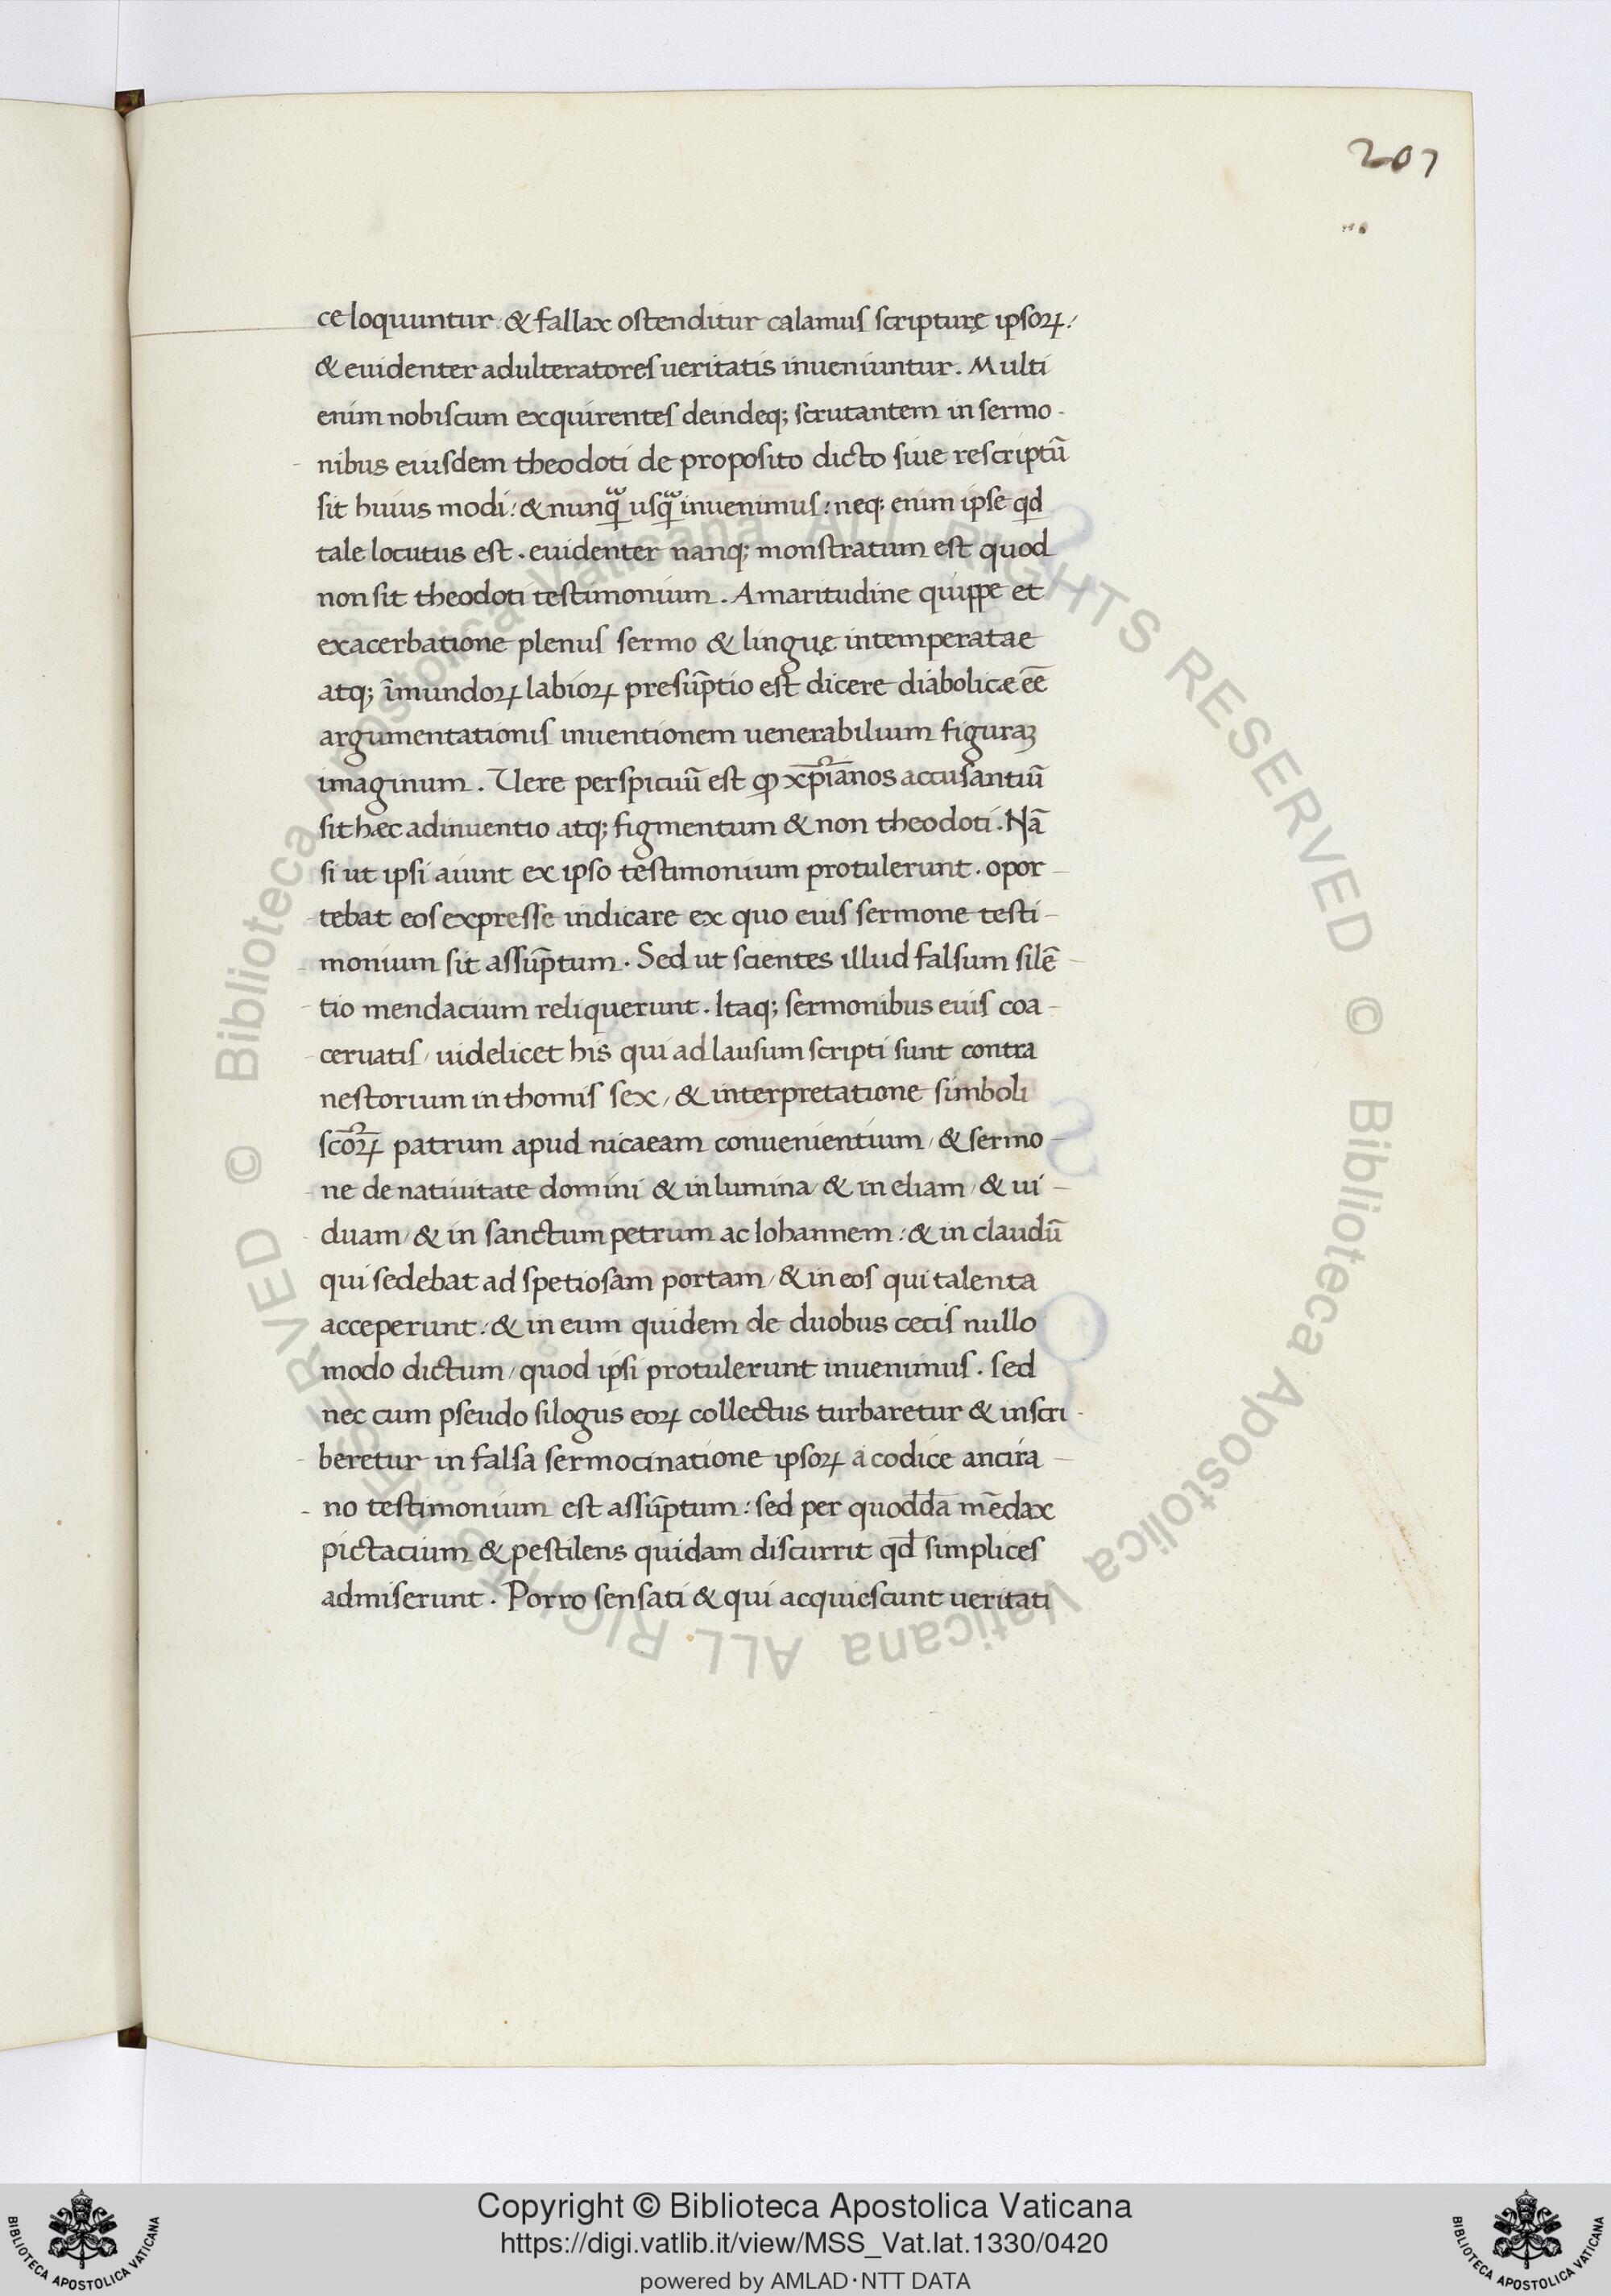 207
ce loquuntur: & fallax ostenditur calamus scripturę ipsoꝝ:
& euidenter adulteratores ueritatis inueniuntur. Multi
enim nobiscum exquirentes deindeq; scrutantem in sermo-
nibus eiusdem theodoti de proposito dicto siue rescriptū
sit huius modi: & nunqͣ usqͣ inuenimus: neq; enim ipse qd
tale locutus est. euidenter nanq; monstratum est quod
non sit theodoti testimonium. Amaritudine quippe et
exacerbatione plenus sermo & linguę intemperatae
atq; īmundoꝝ labioꝝ presūptio est dicere diabolicæ eē
argumentationis inuentionem uenerabilium figuraꝝ
imaginum. Uere perspicuū est ꝙ xp̄ianos accusantiū
sit hæc adinuentio atq; figmentum & non theodoti. Nā
si ut ipsi aiunt ex ipso testimonium protulerunt. opor-
tebat eos expresse indicare ex quo eius sermone testi-
monium sit assūptum. Sed ut scientes illud falsum silē-
tio mendacium reliquerunt. Itaq; sermonibus euis coa-
ceruatis/ uidelicet his qui ad lausum scripti sunt contra
nestorium in thomis sex/ & interpretatione simboli
scōꝝ patrum apud nicaeam conuenientium/ & sermo-
ne de natiuitate domini & in lumina/ & in eliam/ & ui-
duam/ & in sanctum petrum ac Iohannem: & in claudū
qui sedebat ad spetiosam portam/ & in eos qui talenta
acceperunt: & in eum quidem de duobus cecis nullo
modo dictum/ quod ipsi protulerunt inuenimus. sed
nec cum pseudo silogus eoꝝ collectus turbaretur & inscri-
beretur in falsa sermocinatione ipsoꝝ a codice ancira-
no testimonium est assūptum: sed per quoddā mēdax
pictacium & pestilens quidam discurrit qd̄ simplices
admiserunt. Porro sensati & qui acquiescunt ueritati
© Biblioteca Apostolica Vaticana ALL RIGHTS RESERVED © Biblioteca Apostolica Vaticana ALL RIGHTS RESERVED
BIBLIOTECA APOSTOLICA VATICANA
Copyright © Biblioteca Apostolica Vaticana
https://digi.vatlib.it/view/MSS_Vat.lat.1330/0420
powered by AMLAD·NTT DATA
BIBLIOTECA APOSTOLICA VATICANA